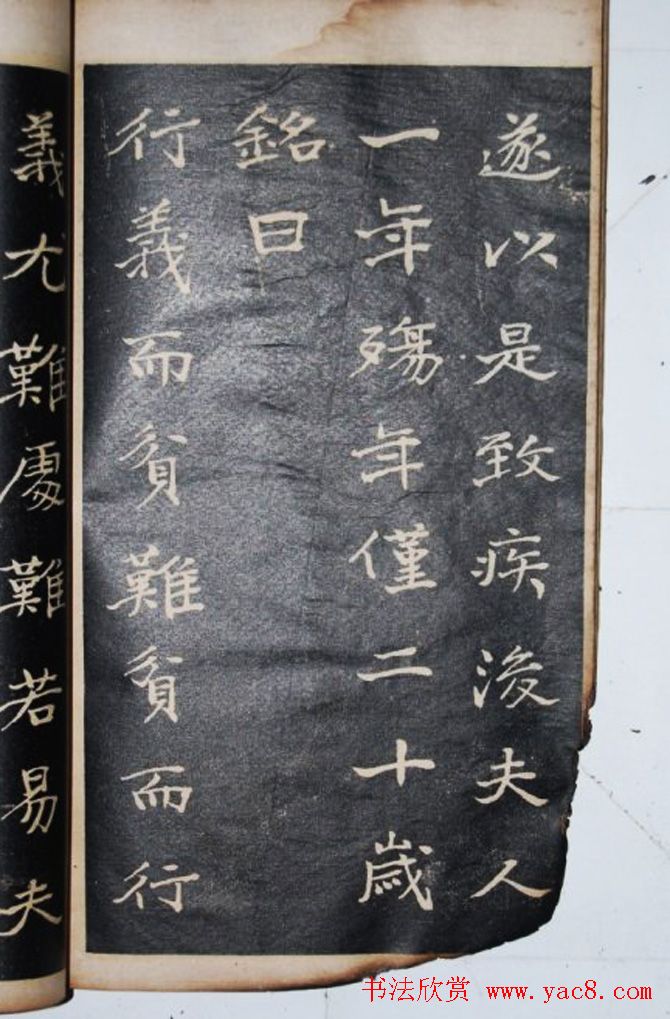 遂以是致疾後夫人
一年殤年僅二十歲
銘曰
行義而貧難貧而行
義尤難處難若易夫
书法欣赏 www.yac8.com